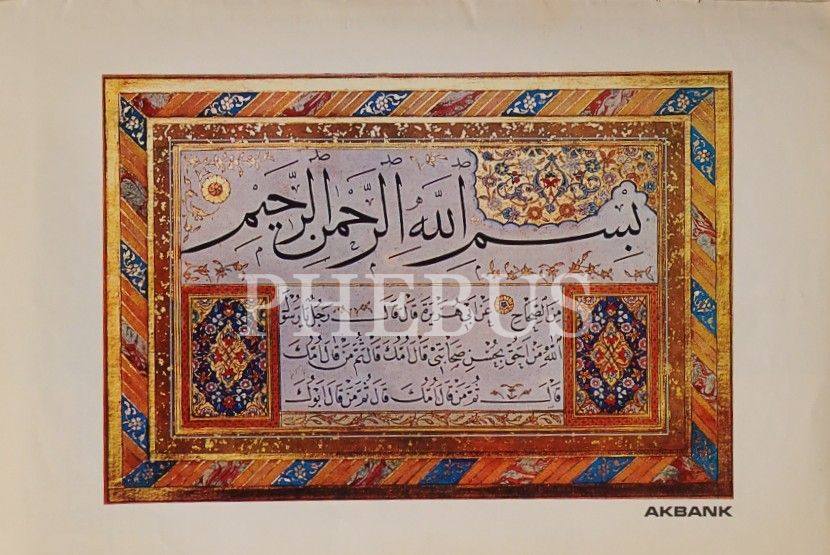 بِسْمِ اللّٰهِ الرَّحْمٰنِ الرَّحِيمِ
مِنَ الصِّحَاحِ عَنْ أَبِي هُرَيْرَةَ قَالَ قَالَ رَجُلٌ يَا رَسُولَ
اللّٰهِ مَنْ أَحَقُّ بِحُسْنِ صَحَابَتِي قَالَ أُمُّكَ قَالَ ثُمَّ مَنْ قَالَ أُمُّكَ
قَالَ ثُمَّ مَنْ قَالَ أُمُّكَ قَالَ ثُمَّ مَنْ قَالَ أَبُوكَ
PHEBUS
AKBANK